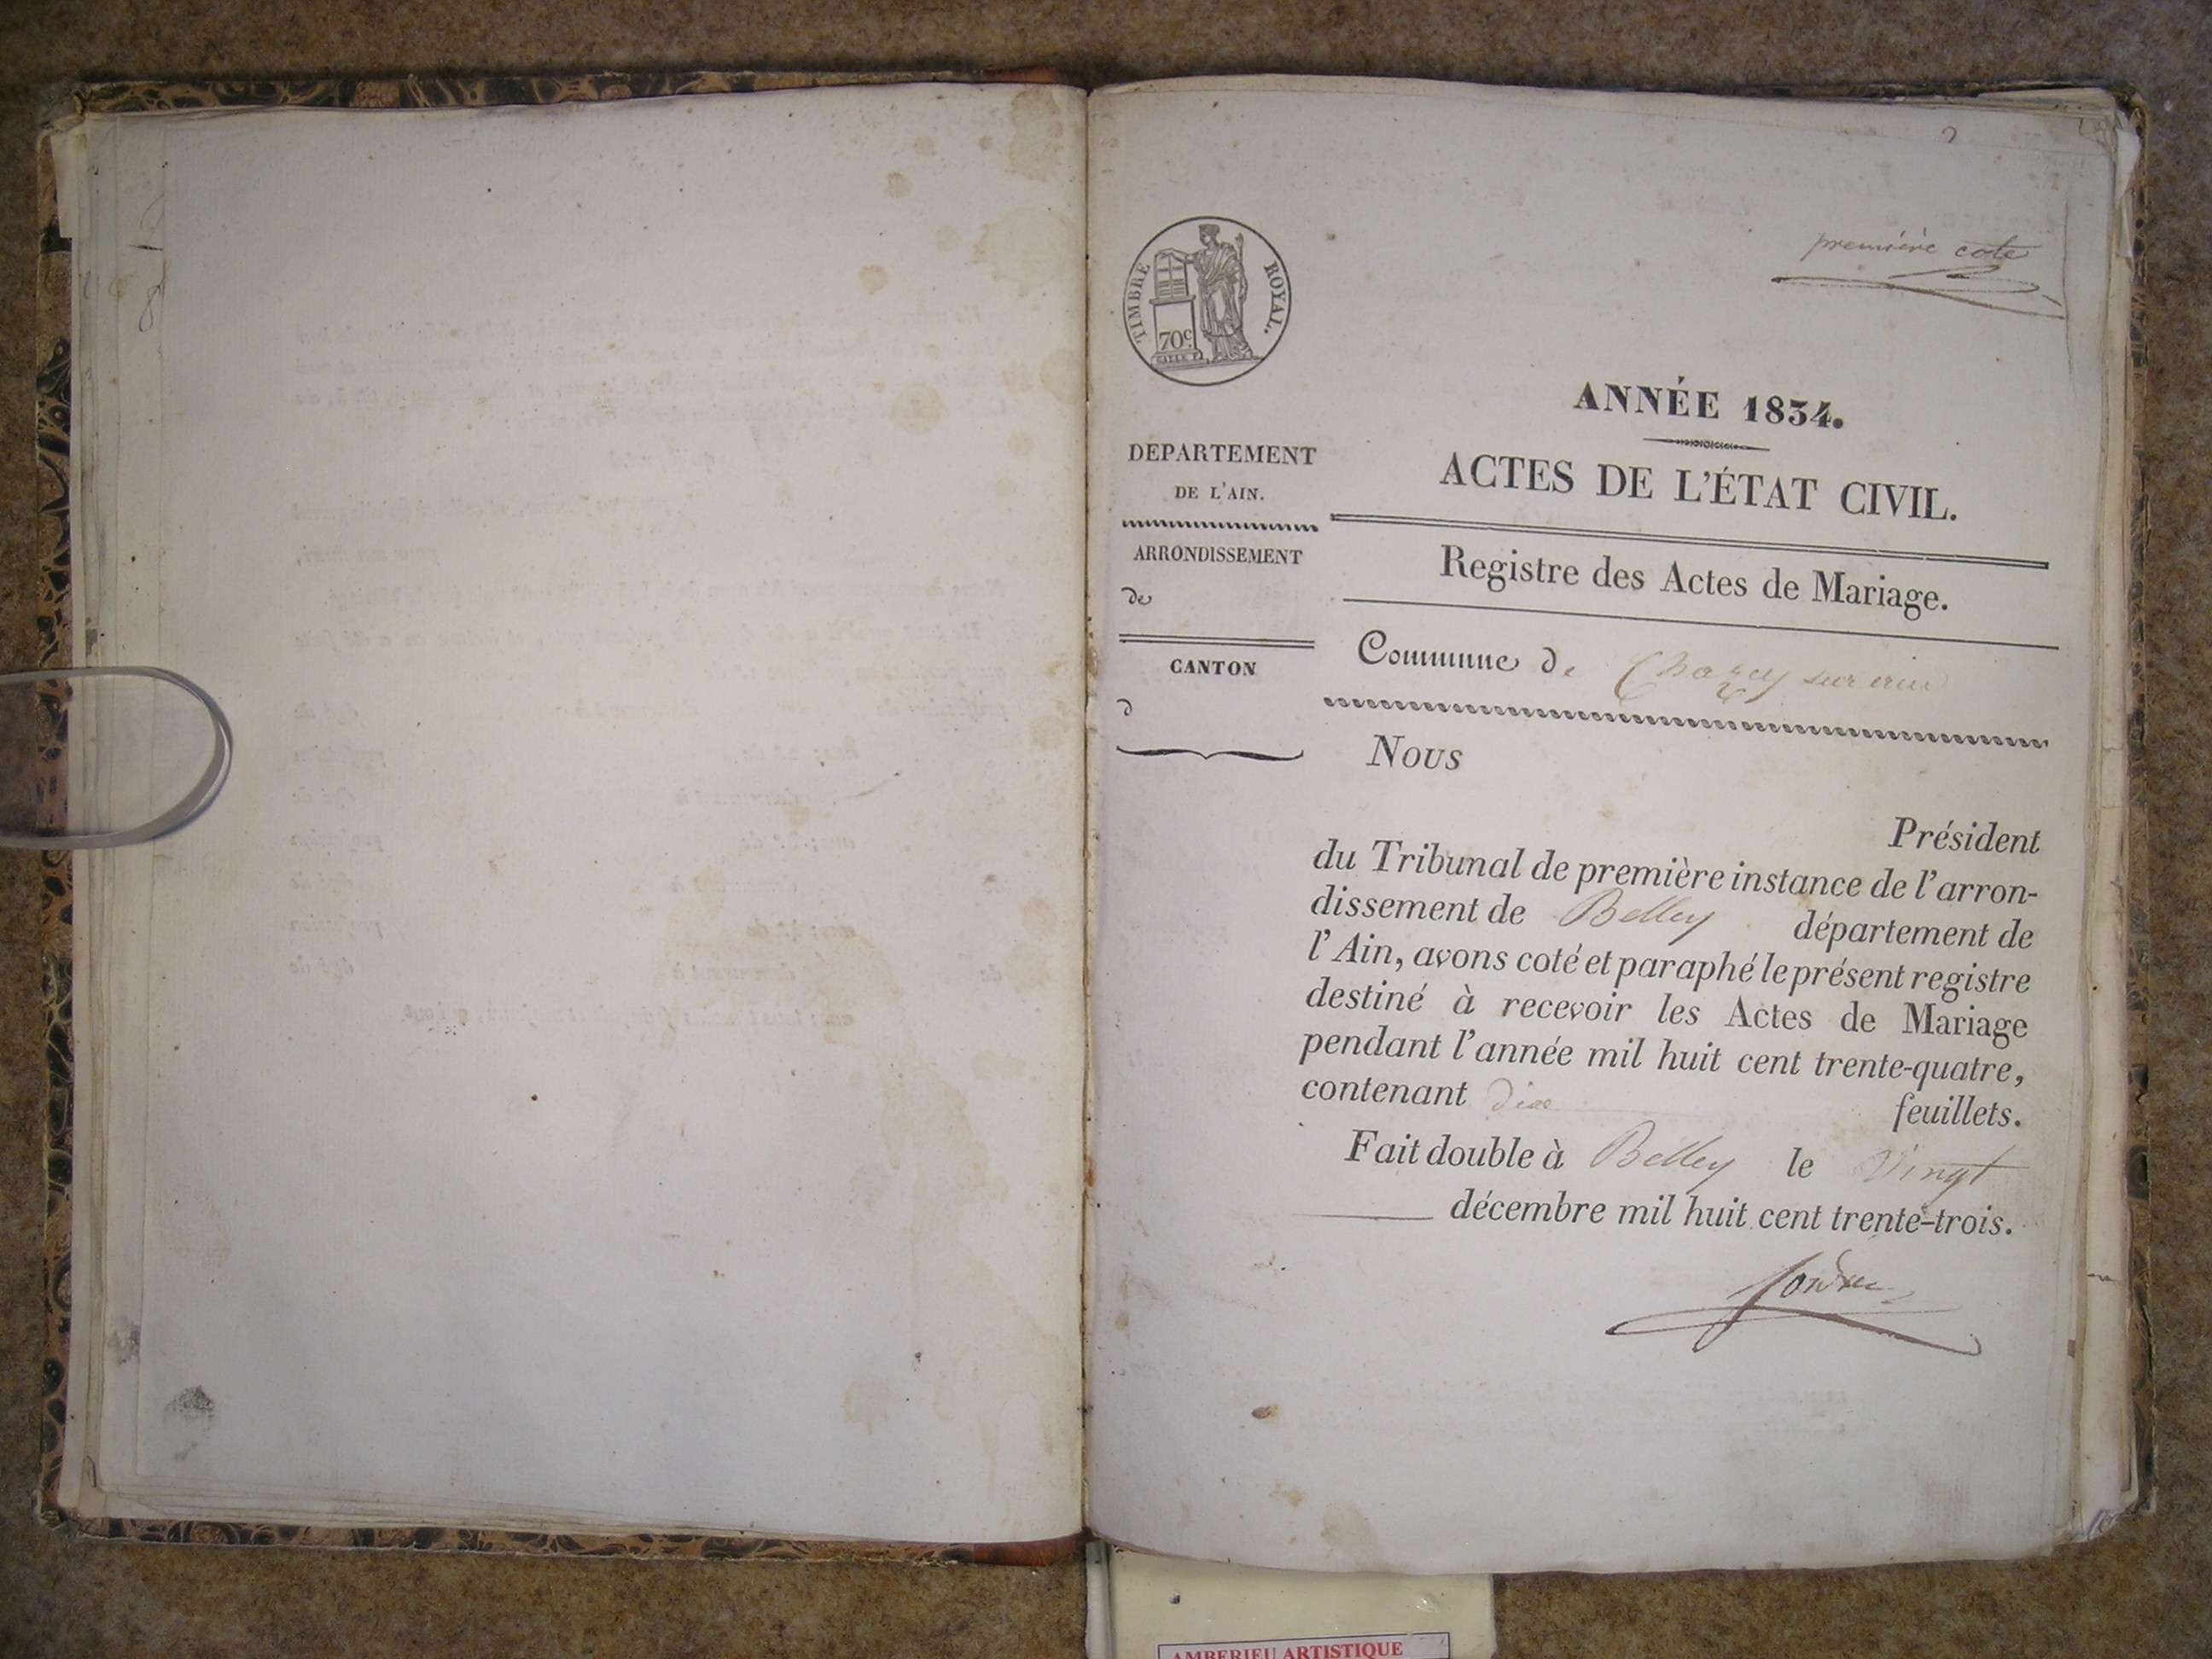 première cote
TIMBRE ROYAL.
70c
ANNÉE 1834.
DEPARTEMENT
DE L'AIN.
ARRONDISSEMENT
de
CANTON
d
ACTES DE L'ÉTAT CIVIL.
Registre des Actes de Mariage.
Commune de Chazey sur ain
Nous
Président
du Tribunal de première instance de l'arron-
dissement de Belley département de
l'Ain, avons coté et paraphé le présent registre
destiné à recevoir les Actes de Mariage
pendant l'année mil huit cent trente-quatre,
contenant dix feuillets.
Fait double à Belley le Vingt
décembre mil huit cent trente-trois.
AMBERIEU ARTISTIQUE